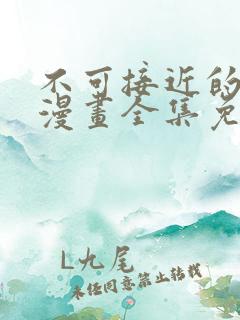 不可接近的
漫畫全集免
L九尾
未经同意禁止转载